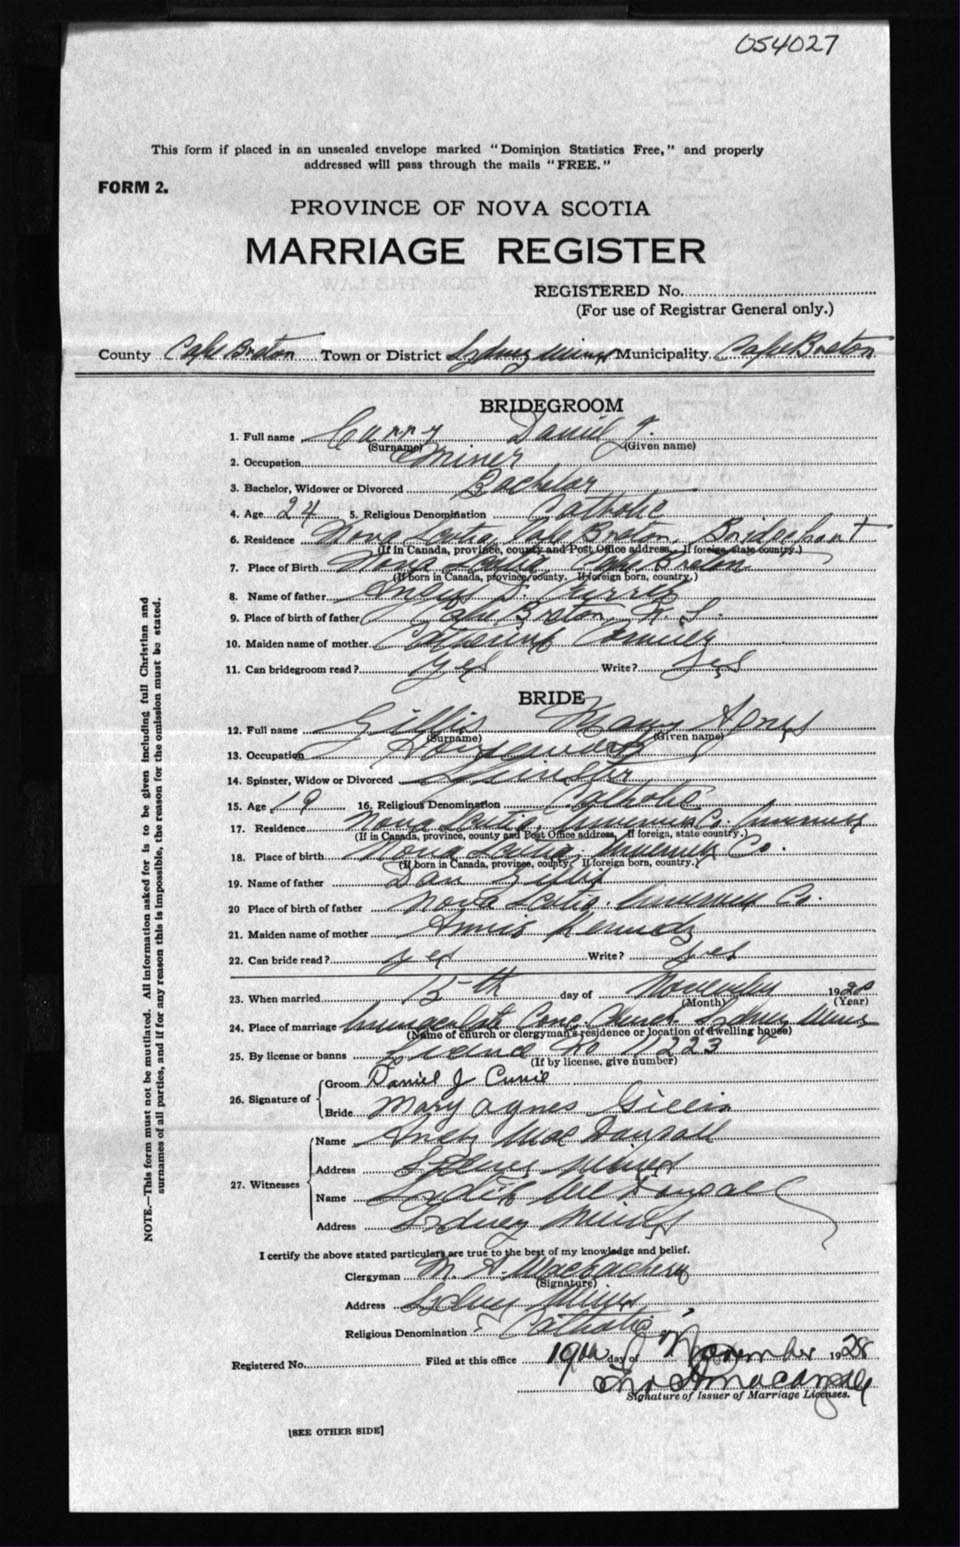 054027
This form if placed in an unsealed envelope marked "Dominion Statistics Free," and properly
addressed will pass through the mails "FREE."
FORM 2.
PROVINCE OF NOVA SCOTIA
MARRIAGE REGISTER
REGISTERED No.
(For use of Registrar General only.)
County Cape Breton Town or District Sydney Mines Municipality. Cape Breton
BRIDEGROOM
1. Full name Curry Daniel J.
(Surname) (Given name)
2. Occupation Miner
3. Bachelor, Widower or Divorced Bachelor
4. Age 24 5. Religious Denomination Catholic
6. Residence Nova Scotia, Cape Breton, Bridgeport
(If in Canada, province, county and Post Office address. If foreign, state country.)
7. Place of Birth Nova Scotia Cape Breton
(If born in Canada, province, county. If foreign born, country.)
8. Name of father Currey
9. Place of birth of father Cape Breton, N. S.
10. Maiden name of mother Catherine
11. Can bridegroom read? yes Write? yes
BRIDE
12. Full name Gillis Mary Agnes
(Surname) (Given name)
13. Occupation Housework
14. Spinster, Widow or Divorced Spinster
15. Age 19 16. Religious Denomination Catholic
17. Residence Nova Scotia, Inverness Co. Inverness
(If in Canada, province, county and Post Office address, If foreign, state country.)
18. Place of birth Nova Scotia, Inverness Co.
(If born in Canada, province, county. If foreign born, country.)
19. Name of father Dan Gillis
20 Place of birth of father Nova Scotia. Inverness Co.
21. Maiden name of mother Annie Kennedy
22. Can bride read? yes Write? yes
23. When married 15th day of November 1928
(Month) (Year)
24. Place of marriage Immaculate Conc. Church Sydney Mines
(Name of church or clergyman's residence or location of dwelling house)
25. By license or banns License No 11223
(If by license, give number)
26. Signature of Groom Daniel J Currie
Bride Mary Agnes Gillis
27. Witnesses Name
Address Sydney Mines
Name
Address Sydney Mines
I certify the above stated particulars are true to the best of my knowledge and belief.
Clergyman M. A. MacEachern
(Signature)
Address Sydney Mines
Religious Denomination Catholic
Registered No. Filed at this office 19th day of November 1928
Signature of Issuer of Marriage Licenses.
[SEE OTHER SIDE]
NOTE.—This form must not be mutilated. All information asked for is to be given including full Christian and
surnames of all parties, and if for any reason this is impossible, the reason for the omission must be stated.